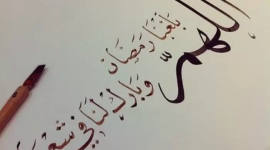 اللهمّ
بلغنا رمضان
وبارك لنا في شعبان